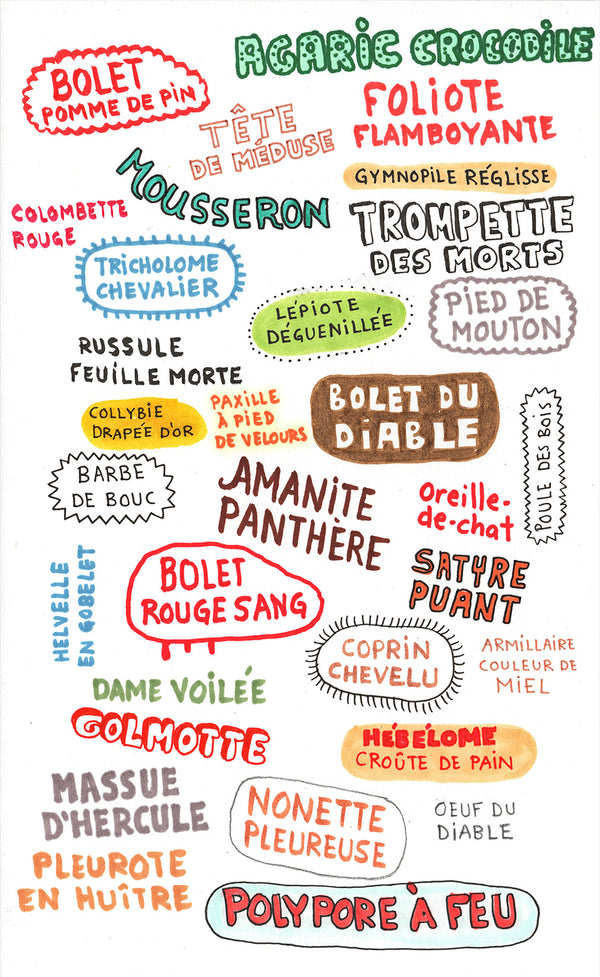 AGARIC CROCODILE
BOLET
POMME DE PIN
FOLIOTE
FLAMBOYANTE
TÊTE
DE MÉDUSE
MOUSSERON
GYMNOPILE RÉGLISSE
COLOMBETTE
ROUGE
TROMPETTE
DES MORTS
TRICHOLOME
CHEVALIER
LÉPIOTE
DÉGUENILLÉE
PIED DE
MOUTON
RUSSULE
FEUILLE MORTE
COLLYBIE
DRAPÉE D'OR
PAXILLE
À PIED
DE VELOURS
BOLET DU
DIABLE
POULE DES BOIS
BARBE
DE BOUC
AMANITE
PANTHÈRE
Oreille-
de-chat
HELVELLE
EN GOBELET
BOLET
ROUGE SANG
SATYRE
PUANT
COPRIN
CHEVELU
ARMILLAIRE
COULEUR DE
MIEL
DAME VOILÉE
GOLMOTTE
HÉBÉLOME
CROÛTE DE PAIN
MASSUE
D'HERCULE
NONETTE
PLEUREUSE
OEUF DU
DIABLE
PLEUROTE
EN HUÎTRE
POLYPORE À FEU